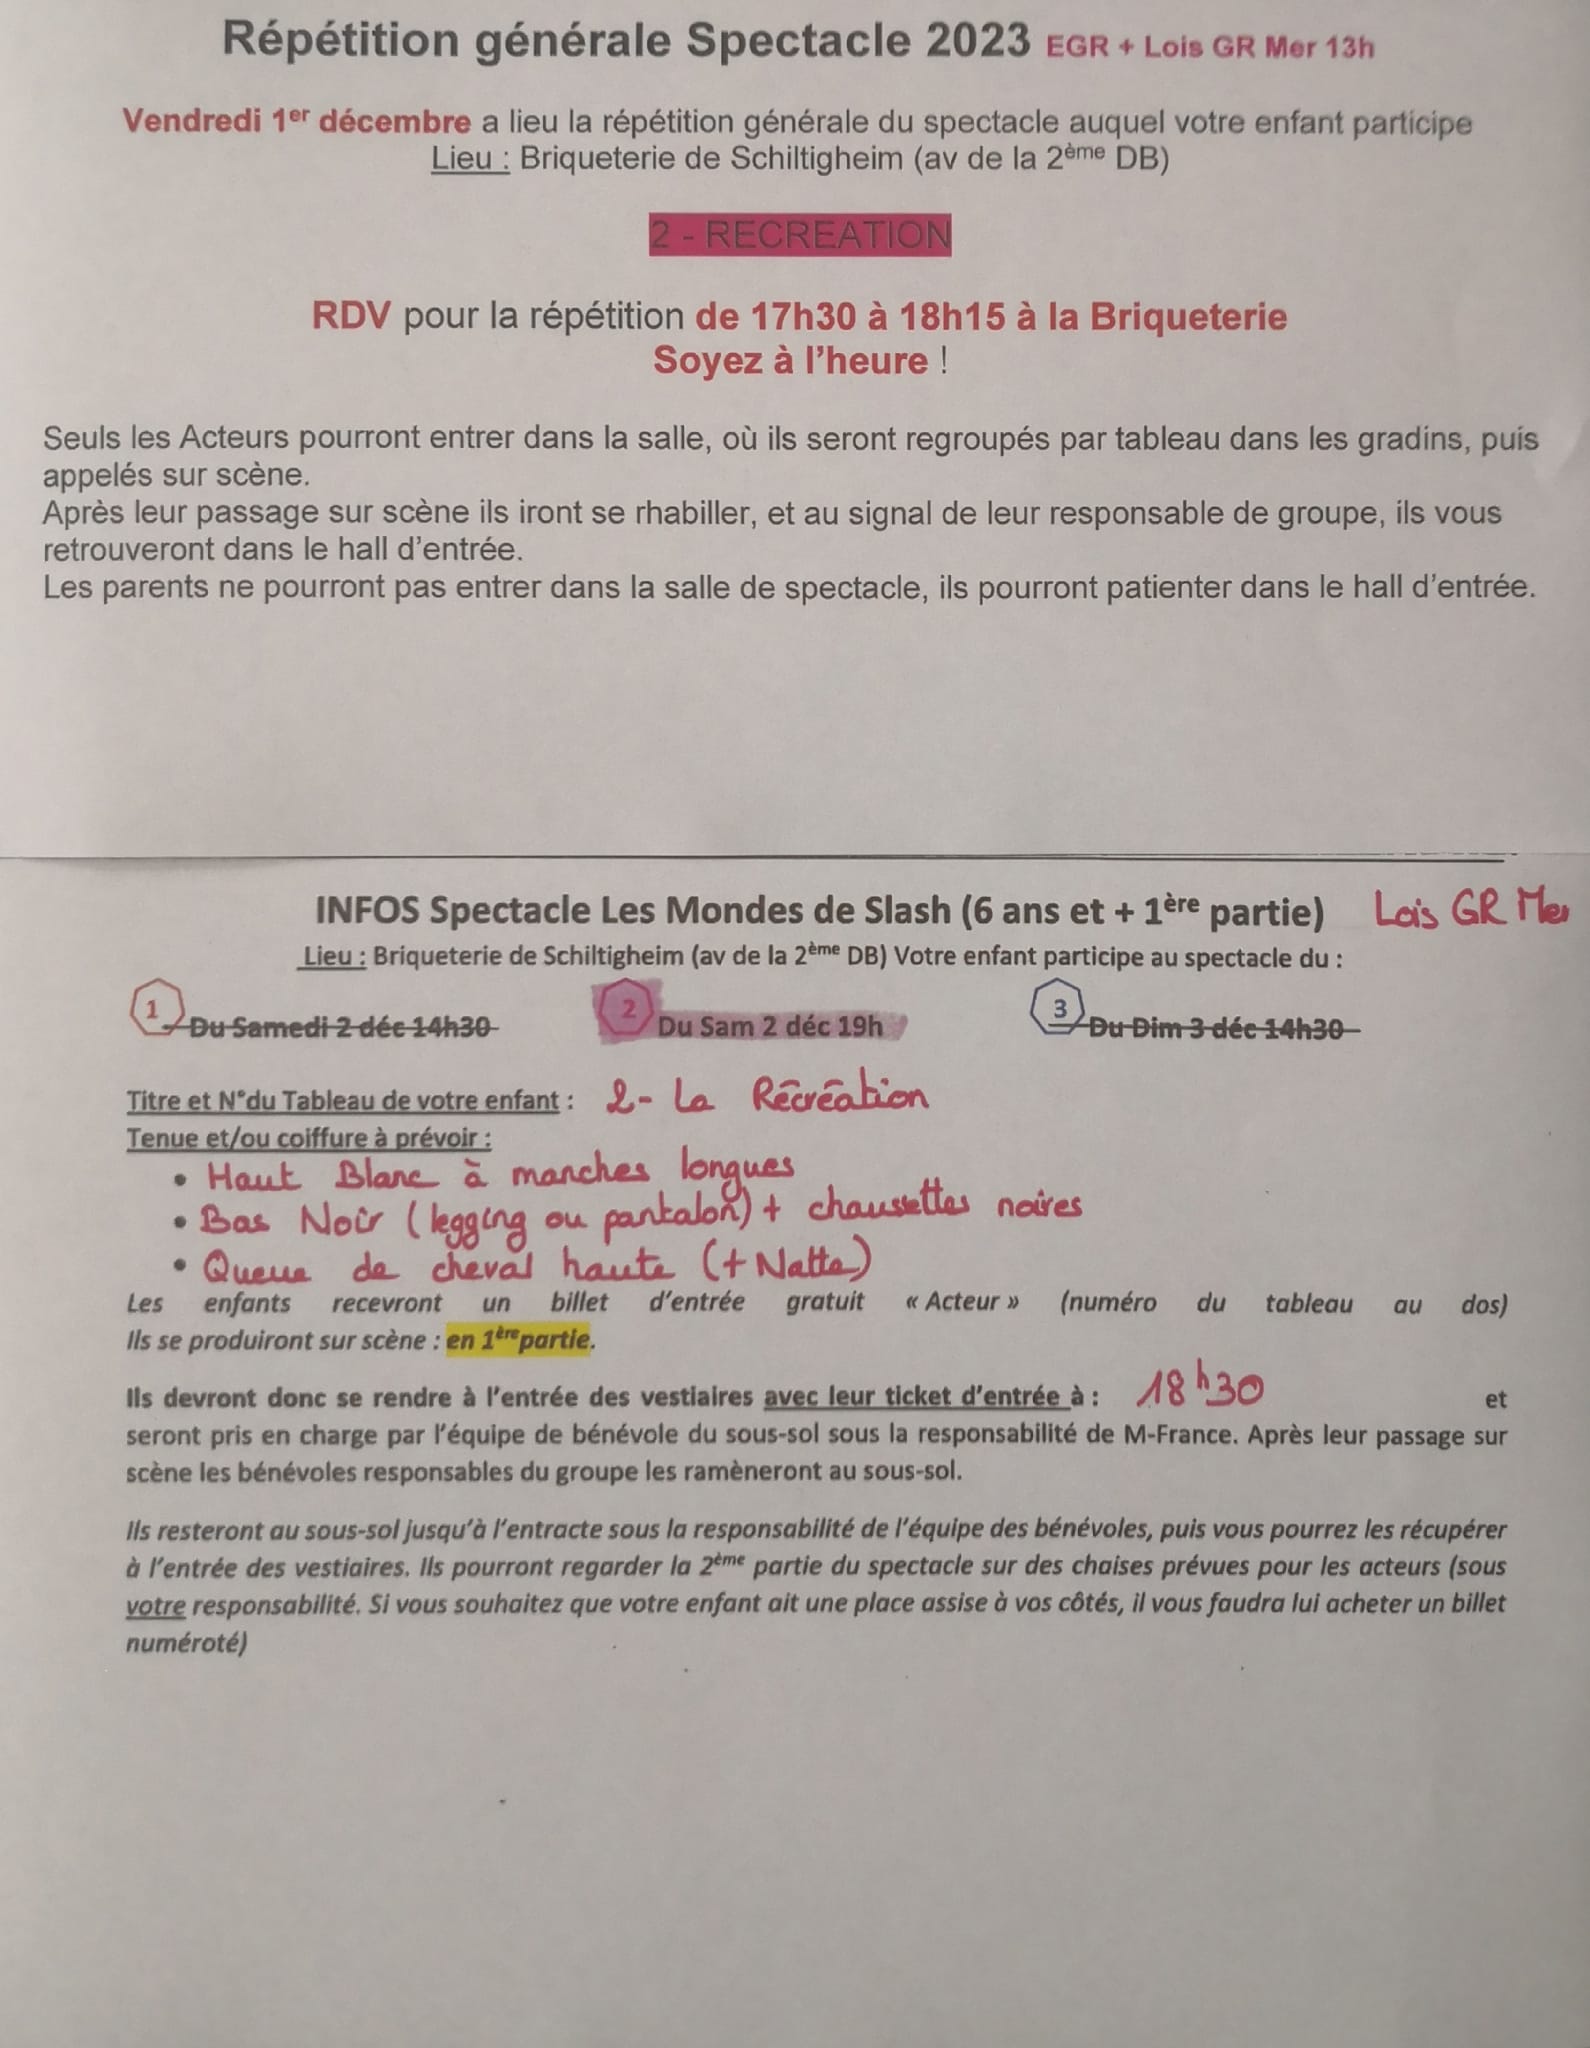 Répétition générale Spectacle 2023 EGR + Lois GR Mer 13h
Vendredi 1er décembre a lieu la répétition générale du spectacle auquel votre enfant participe
Lieu : Briqueterie de Schiltigheim (av de la 2ème DB)
2 - RECREATION
RDV pour la répétition de 17h30 à 18h15 à la Briqueterie
Soyez à l'heure !
Seuls les Acteurs pourront entrer dans la salle, où ils seront regroupés par tableau dans les gradins, puis
appelés sur scène.
Après leur passage sur scène ils iront se rhabiller, et au signal de leur responsable de groupe, ils vous
retrouveront dans le hall d'entrée.
Les parents ne pourront pas entrer dans la salle de spectacle, ils pourront patienter dans le hall d'entrée.
INFOS Spectacle Les Mondes de Slash (6 ans et + 1ère partie) Lois GR Mer
Lieu : Briqueterie de Schiltigheim (av de la 2ème DB) Votre enfant participe au spectacle du :
1 Du Samedi 2 déc 14h30 2 Du Sam 2 déc 19h 3 Du Dim 3 déc 14h30
Titre et N°du Tableau de votre enfant : 2- La Récréation
Tenue et/ou coiffure à prévoir :
• Haut Blanc à manches longues
• Bas Noir (legging ou pantalon) + chaussettes noires
• Queue de cheval haute (+ Natte)
Les enfants recevront un billet d'entrée gratuit « Acteur » (numéro du tableau au dos)
Ils se produiront sur scène : en 1ère partie.
Ils devront donc se rendre à l'entrée des vestiaires avec leur ticket d'entrée à : 18h30 et
seront pris en charge par l'équipe de bénévole du sous-sol sous la responsabilité de M-France. Après leur passage sur
scène les bénévoles responsables du groupe les ramèneront au sous-sol.
Ils resteront au sous-sol jusqu'à l'entracte sous la responsabilité de l'équipe des bénévoles, puis vous pourrez les récupérer
à l'entrée des vestiaires. Ils pourront regarder la 2ème partie du spectacle sur des chaises prévues pour les acteurs (sous
votre responsabilité. Si vous souhaitez que votre enfant ait une place assise à vos côtés, il vous faudra lui acheter un billet
numéroté)